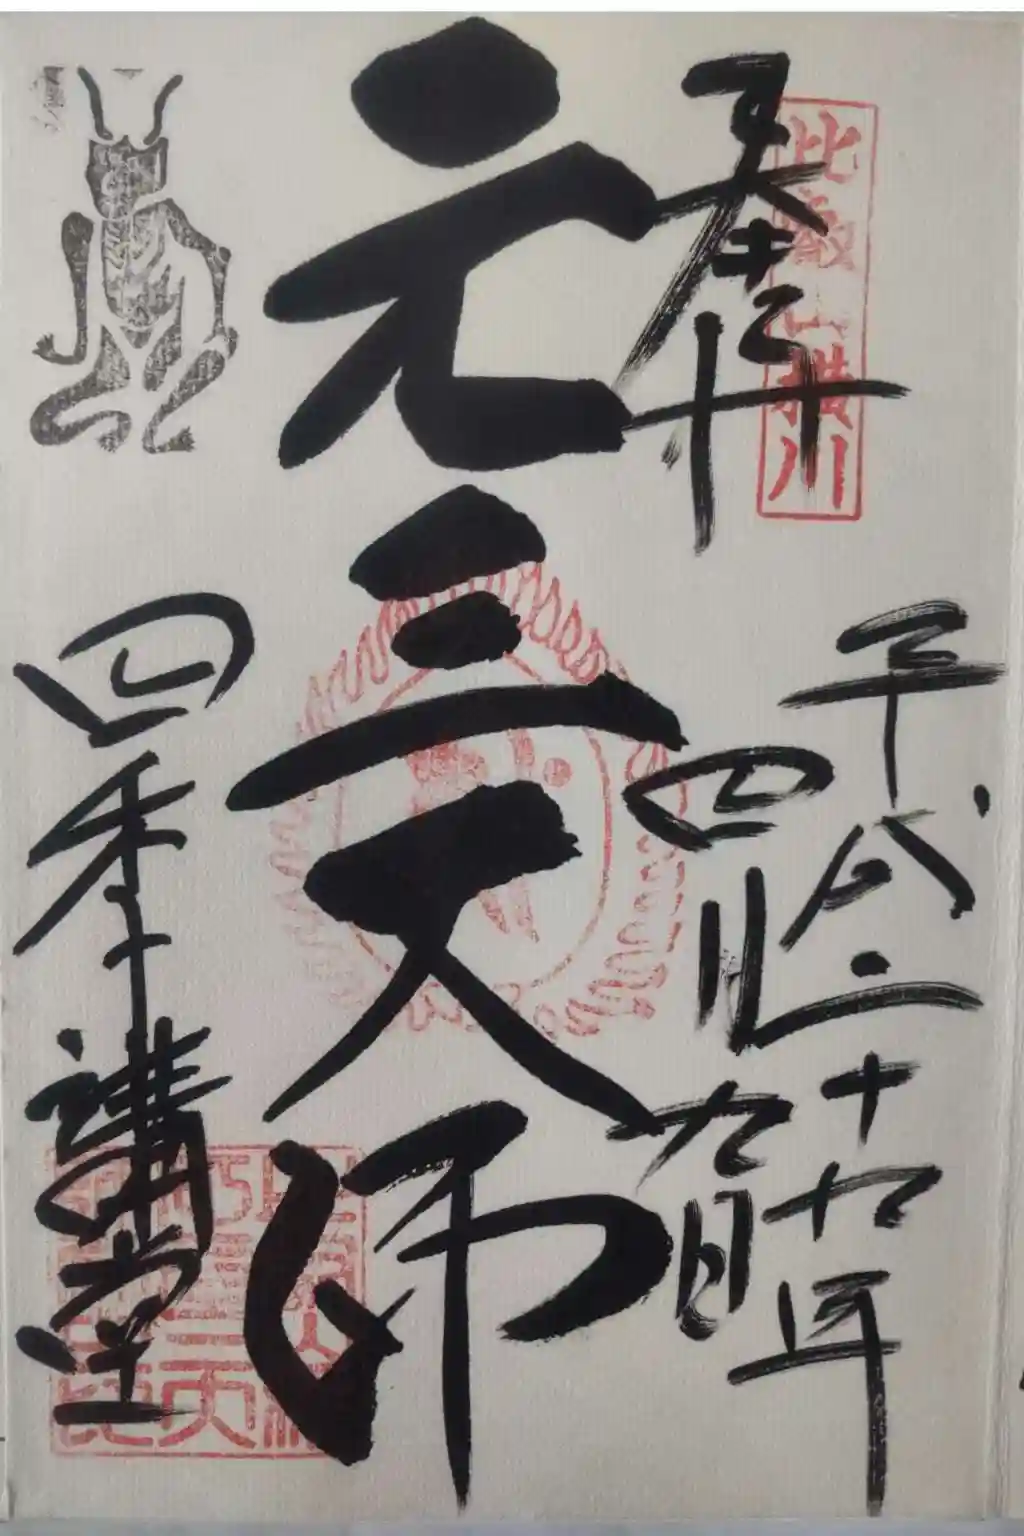 奉拝
比叡山横川
平成二十九年
四月九日
元三大師
四季講堂